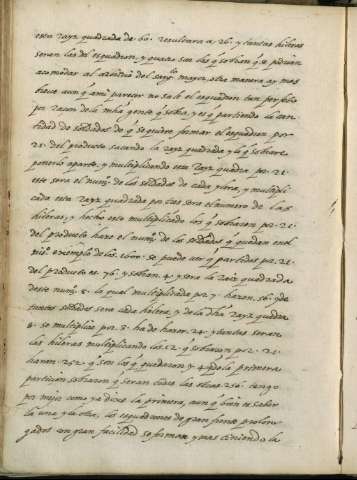 esta rayz quadrada de .60. resultara a .76. y tantas hileras
seran las del esquadron, y quatro son los q̃ sobran q̃ se podran
acomodar al arbitrio del sargto mayor, otra manera ay mas
breve aunq̃ a mi parecer no sale el esquadron tan perfeto
por razon de la mha gente q̃ sobra, y es q̃ partiendo la can
tidad de soldados de q̃ se quiere formar el esquadron por
21. del producto sacando la rayz quadrada y lo q̃ sobrare
ponerlo aparte, y multiplicando esta rayz quadra por .21.
este sera el num.º de los soldados de cada hilera, y multipli
cada esta rayz quadrada por tres sera el numero de las
hileras, y hecho esto multiplicado los q̃ sobraron por .21.
del producto hare el num.º de los soldados q̃ quedan en el
mio exemplo de los .1600. se puede ver q̃ partidos por .21.
del producto es .76. y sobran .4. y sera la raiz quadrada
deste num.º 8. la qual multiplicada por 7. hazen .56. y de
tantos soldados sera cada hilera, y de la dha rayz quadra
8. se multiplica por .3. ha de hazer .24. y tantas seran
las hileras multiplicando los .12. q̃ sobraron por .21.
haran .252. q̃ son los q̃ quedaron y 4 q̃ de la primera
particion sobraron q̃ seran todos los dhos 256. tengo
por mejor como ya dixe la primera, aun q̃ bien es saber
la una, y la otra, los esquadrones de gran frente prolon
gados con gran facilidad se forman, y mas teniendo la